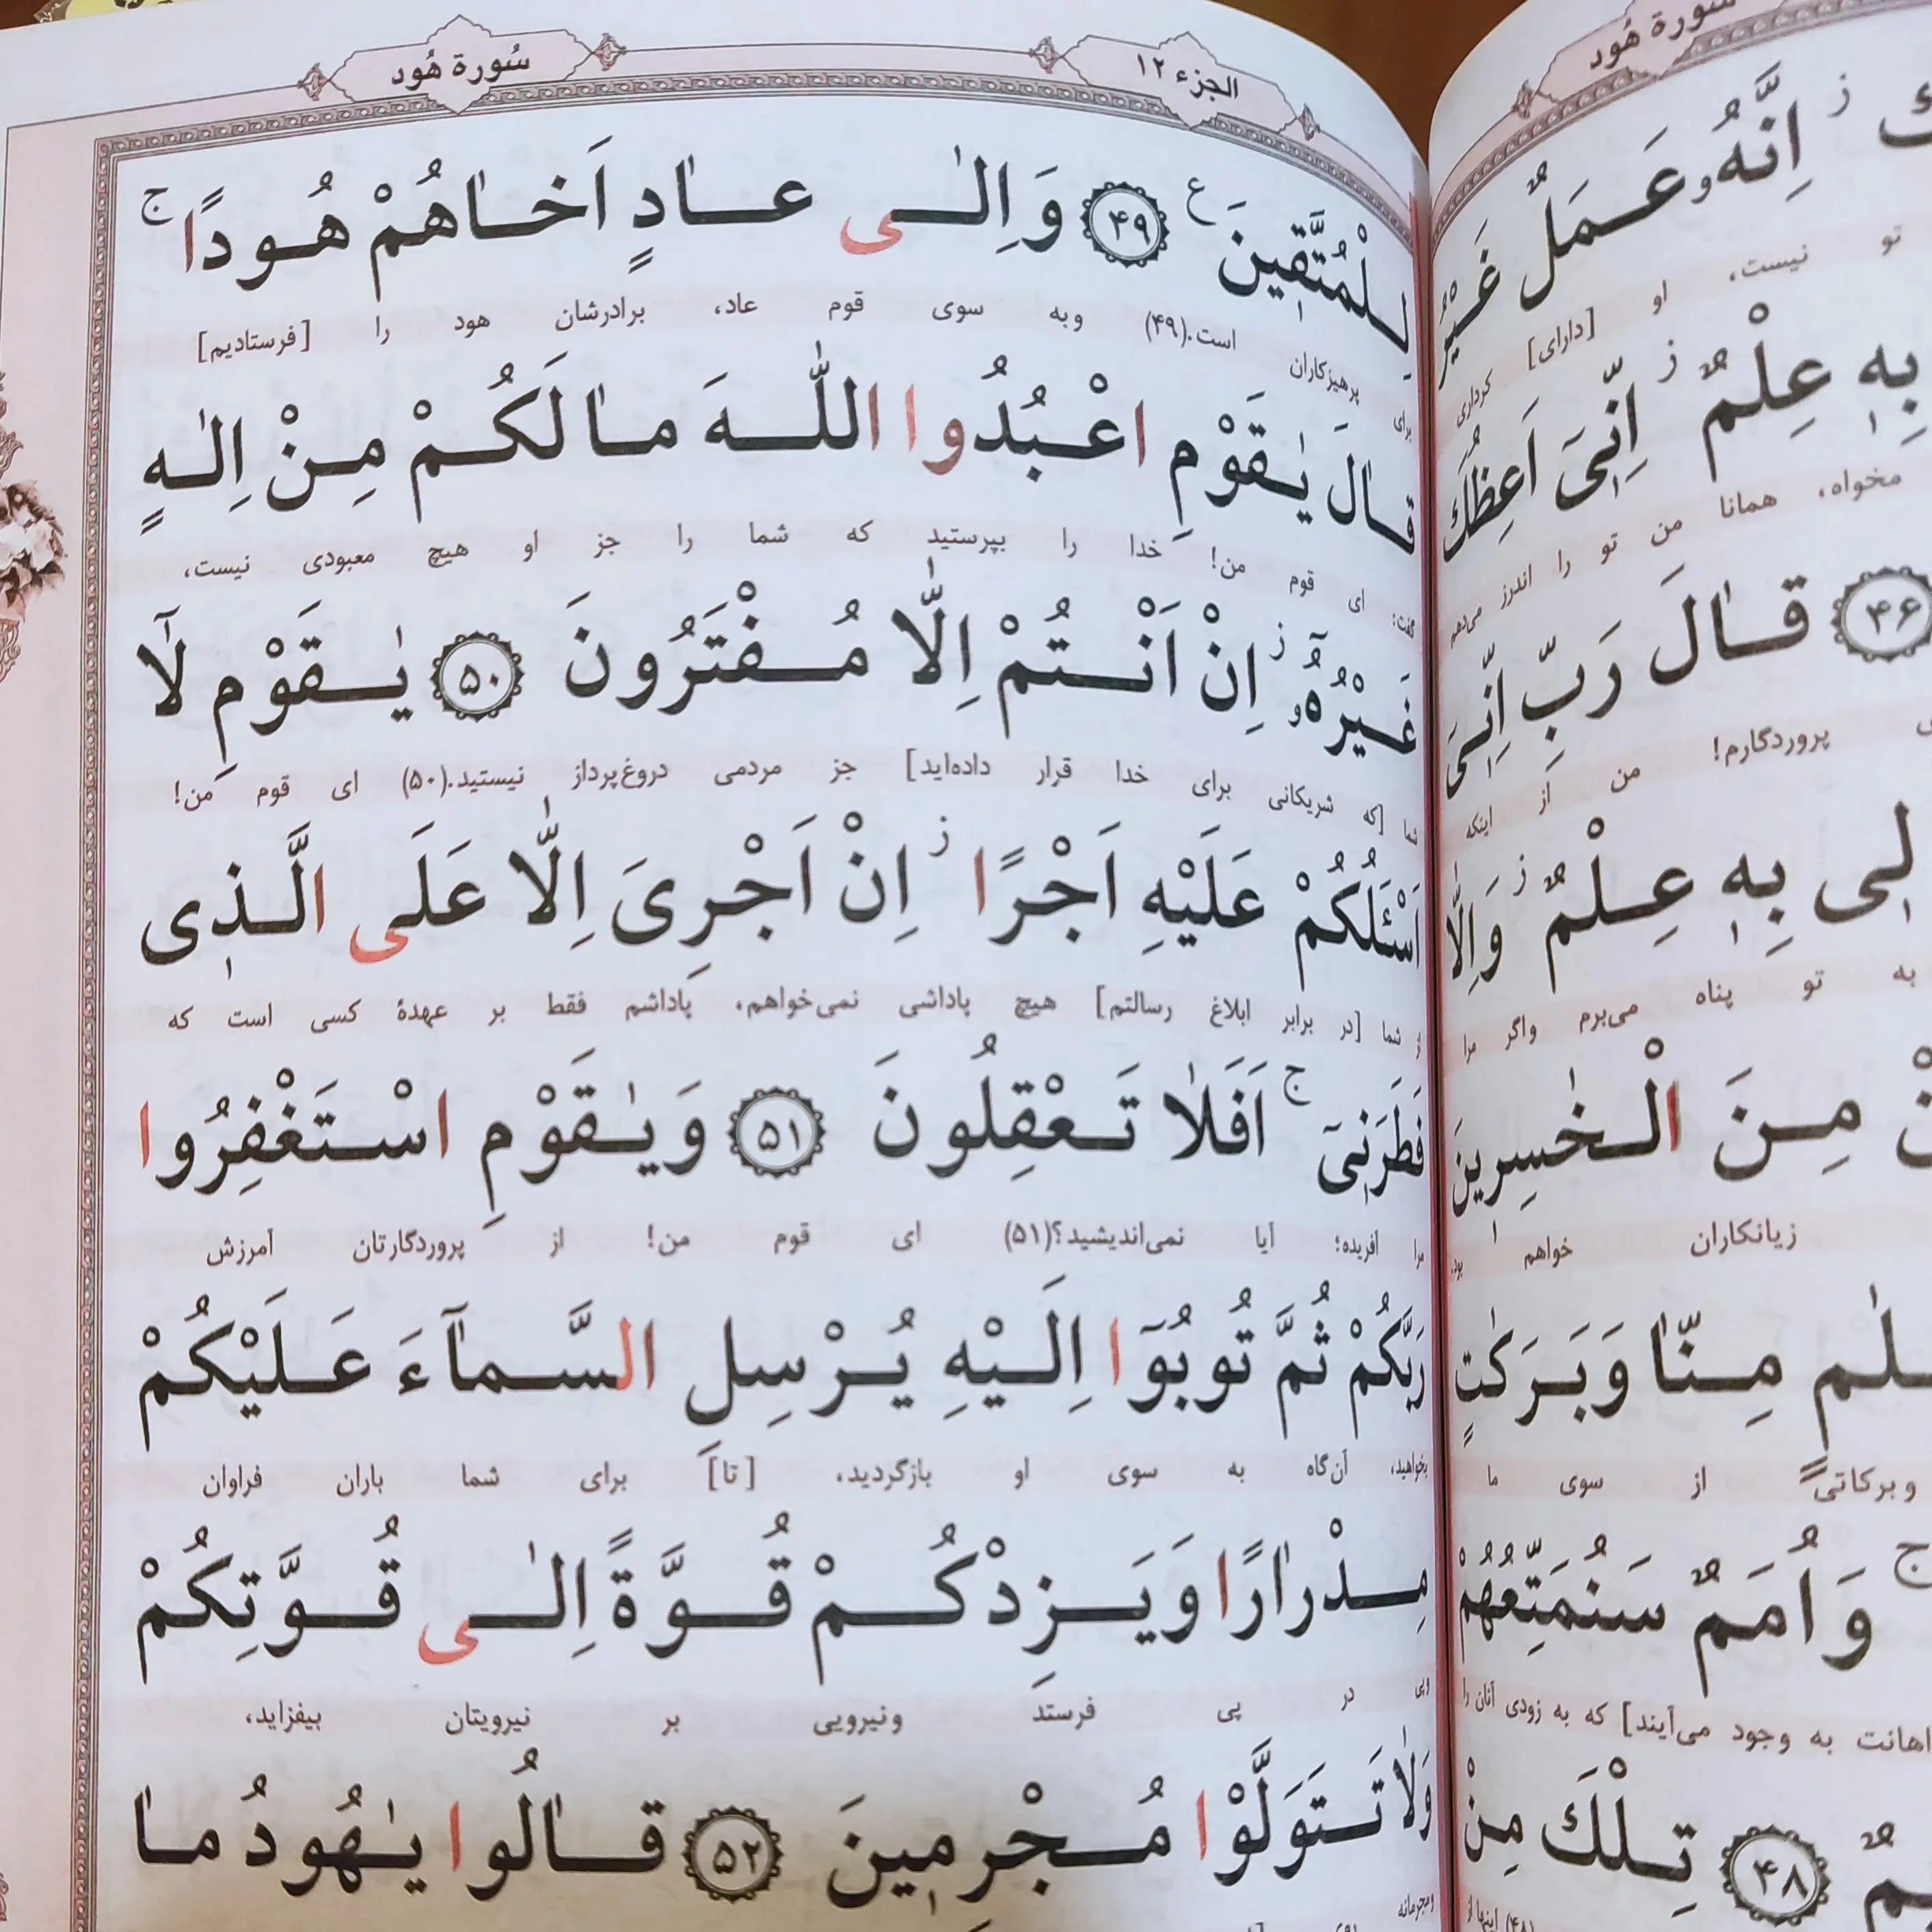 سورة هُود
ك ز اِنَّهُ و عَمَلٌ غَيْرُ
تو نیست، او [دارای] کرداری
بِهٖ عِلْمٌ ز اِنّٖىٓ اَعِظُكَ
مخواه، همانا من تو را اندرز می‌دهم
۴۶ قٰالَ رَبِّ اِنّٖىٓ
پروردگارم! من از اینکه
لٖى بِهٖ عِلْمٌ ز وَ اِلّٰا
به تو پناه می‌برم واگر مرا
مِنَ الْخٰسِرينَ
زیانکاران خواهم بود.
مِنّٰا وَ بَرَكٰتٍ
وبرکاتی از سوی ما
ج وَ اُمَمٌ سَنُمَتِّعُهُمْ
اهانت به وجود می‌آیند] که به زودی آنان را
۴۸ تِلْكَ مِنْ
الجزء ۱۲
سُورة هُود
لِلْمُتَّقٖينَ ع ۴۹ وَ اِلىٰ عٰادٍ اَخٰاهُمْ هُودًا ج
برای پرهیزکاران است.(۴۹) وبه سوی قوم عاد، برادرشان هود را [فرستادیم]
قٰالَ يٰقَوْمِ اعْبُدُوا اللّٰهَ مٰا لَكُمْ مِنْ اِلٰهٍ
گفت: ای قوم من! خدا را بپرستید که شما را جز او هیچ معبودی نیست،
غَيْرُهُٓ و ز اِنْ اَنْتُمْ اِلّٰا مُفْتَرُونَ ۵۰ يٰقَوْمِ لٰٓا
شما [که شریکانی برای خدا قرار داده‌اید] جز مردمی دروغ‌پرداز نیستید.(۵۰) ای قوم من!
اَسْئَلُكُمْ عَلَيْهِ اَجْرًا ز اِنْ اَجْرِىَ اِلّٰا عَلَى الَّذٖى
از شما [در برابر ابلاغ رسالتم] هیچ پاداشی نمی‌خواهم، پاداشم فقط بر عهدهٔ کسی است که
فَطَرَنٖىٓ ج اَفَلٰا تَعْقِلُونَ ۵۱ وَ يٰقَوْمِ اسْتَغْفِرُوا
مرا آفریده؛ آیا نمی‌اندیشید؟(۵۱) ای قوم من! از پروردگارتان آمرزش
رَبَّكُمْ ثُمَّ تُوبُوٓا اِلَيْهِ يُرْسِلِ السَّمٰٓاءَ عَلَيْكُمْ
بخواهید، آن‌گاه به سوی او بازگردید، [تا] برای شما باران فراوان
مِدْرٰارًا وَ يَزِدْكُمْ قُوَّةً اِلىٰ قُوَّتِكُمْ
وپی در پی فرستد ونیرویی بر نیرویتان بیفزاید،
وَ لٰا تَتَوَلَّوْا مُجْرِمٖينَ ۵۲ قٰالُوا يٰهُودُ مٰا
ومجرمانه